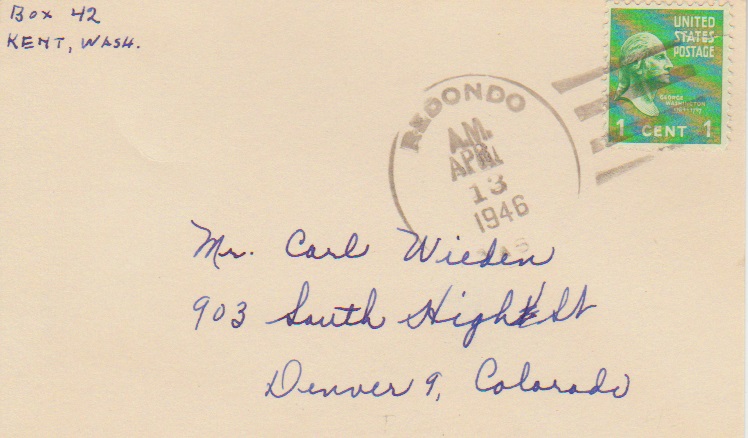 Box 42
KENT, WASH.
UNITED
STATES
POSTAGE
GEORGE
WASHINGTON
1 CENT 1
REDONDO
A.M.
APR
13
1946
WAS
Mr. Carl Wieden
903 South High St
Denver 9, Colorado